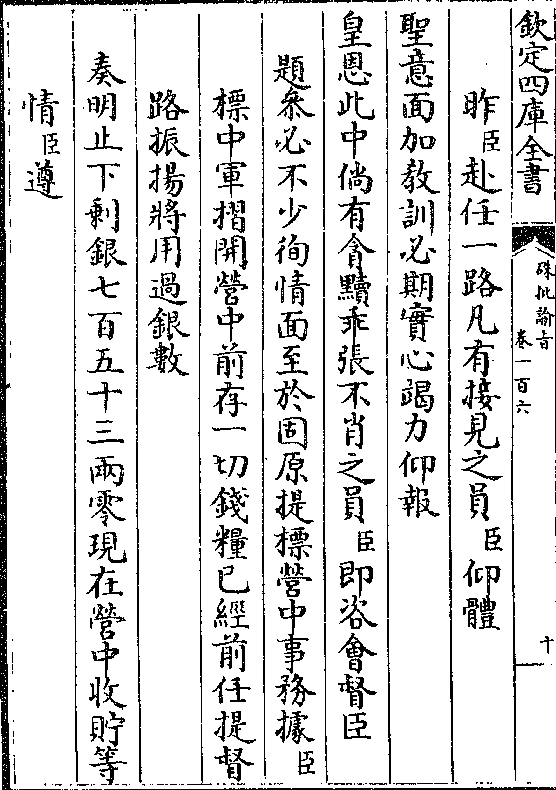 欽定四庫全書
硃批諭旨
卷一百六
十
昨臣赴任一路凡有接見之員臣仰體
聖意面加教訓必期實心竭力仰報
皇恩此中倘有貪黷乖張不肖之員臣即咨會督臣
題參必不少徇情面至於固原提標營中事務據臣
標中軍摺開營中前存一切錢糧已經前任提督
路振揚將用過銀數
奏明止下剩銀七百五十三兩零現在營中收貯等
情臣遵